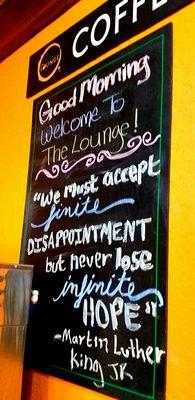 COFFE
Good Morning
Welcome To
The Lounge!
"We must accept
finite
DISAPPOINTMENT
but never lose
infinite
HOPE"
-Martin Luther
King Jr